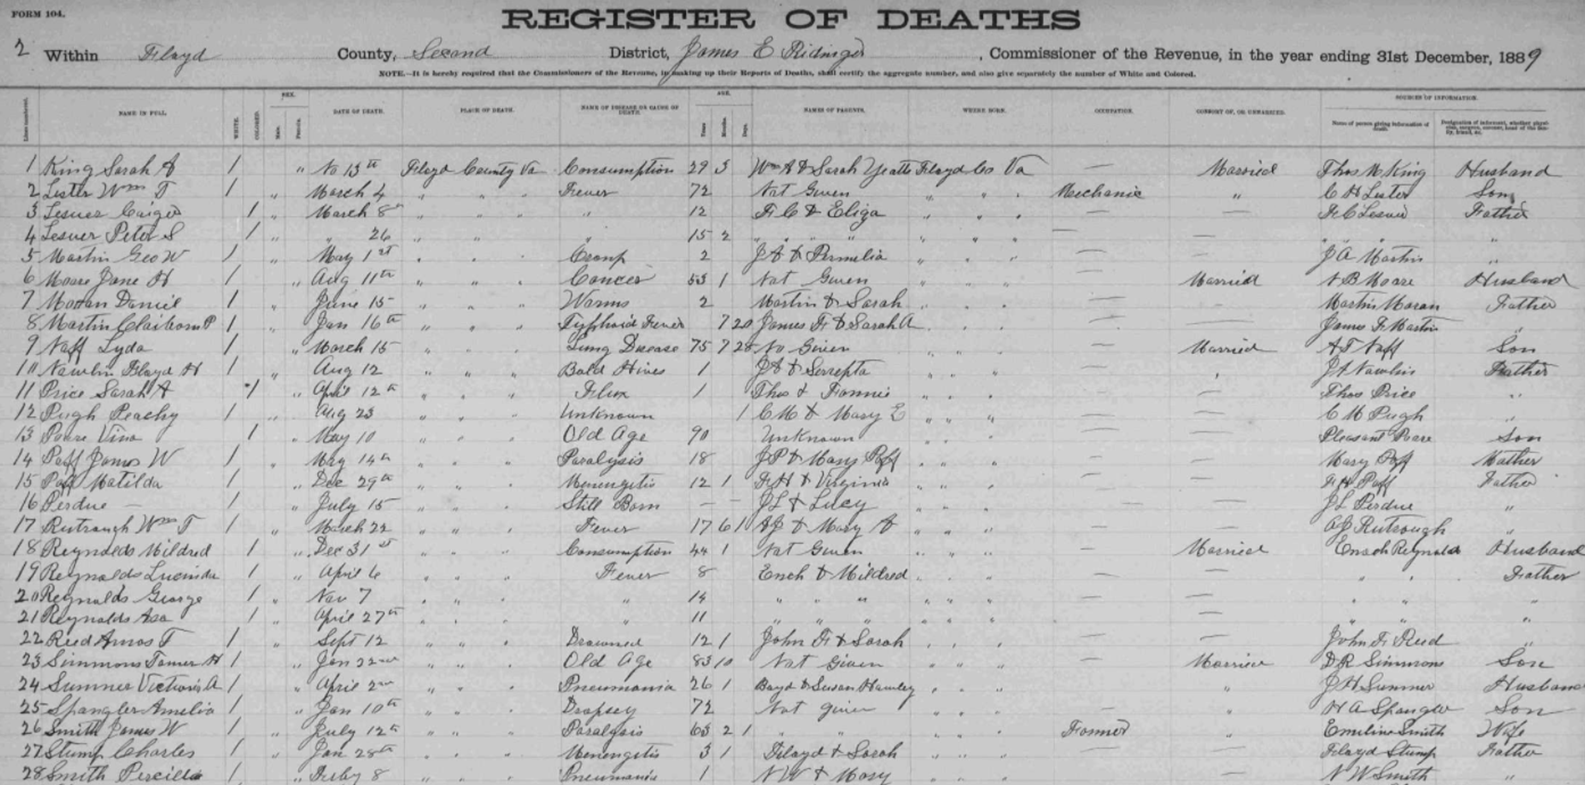 FORM 104.
REGISTER OF DEATHS
2 Within Floyd County, Second District, James E Ridinger, Commissioner of the Revenue, in the year ending 31st December, 1889
NOTE.—It is hereby required that the Commissioners of the Revenue, in making up their Reports of Deaths, shall certify the aggregate number, and also give separately the number of White and Colored.
NAME IN FULL. WHITE. COLORED. SEX. Male. Female. DATE OF DEATH. PLACE OF DEATH. NAME OF DISEASE OR CAUSE OF DEATH. AGE. Years Months Days. NAMES OF PARENTS. WHERE BORN. OCCUPATION. CONSORT OF, OR UNMARRIED. SOURCES OF INFORMATION. Name of person giving information of death.
1 King Sarah A 1 " No 13th Floyd County Va Consumption 29 3 Wm A & Sarah Yeatts Floyd Co Va — Married Thos M King Husband
2 Lester Wm T 1 " March 4 " " " Fever 72 Not Given " " Mechanic " C H Lester Son
3 Lesuer 1 " March 8 " " " " 12 F C & Eliza " " " — — F C Lesuer Father
4 Lesuer Peter S 1 " " 26 " " " " 15 2 " " " " " " — — " "
5 Martin Geo W 1 " May 1st " " " Croup 2 J A & Permelia " " " — — J A Martin "
6 Moore Jane H 1 " Aug 11th " " " Cancer 53 1 Not Given " " " — Married N B Moore Husband
7 Moran Daniel 1 " June 15 " " " Worms 2 Martin & Sarah " " " — — Martin Moran Father
8 Martin Claiborn P 1 " Jan 16th " " " Typhoid Fever 7 20 James F & Sarah A " " " — — James F Martin "
9 Naff Lyda 1 " March 15 " " " Lung Disease 75 7 28 No Given " " " — Married A T Naff Son
10 Nawlin Floyd H 1 " Aug 12 " " " Bold Hives 1 J A & Serrepta " " " — J A Nawlins Father
11 Price Sarah A 1 " April 12th " " " Flux 1 Thos & Fannie " " " — — Thos Price "
12 Pugh Peachy 1 " Aug 23 " " " Unknown 1 C M & Mary E " " " — — C M Pugh "
13 Poare Vina 1 " May 10 " " " Old Age 90 Unknown " " " — Pleasant Poare Son
14 Poff James W 1 " May 14th " " " Paralysis 18 J P & Mary Poff " " " — — Mary Poff Mother
15 Poff Matilda 1 " Dec 29th " " " Menengetis 12 1 F H & Virginia " " " — — F H Poff Father
16 Perdue — 1 " July 15 " " " Still Born — — J L & Lucy " " " — — J L Perdue "
17 Rutrough Wm T 1 " March 22 " " " Fever 17 6 1 & Mary A " " " — — Rutrough "
18 Reynolds Mildred 1 " Dec 31st " " " Consumption 44 1 Not Given " " " — Married Enoch Reynolds Husband
19 Reynolds Lucinda 1 " April 6 " " " Fever 8 Enoch & Mildred " " " — — " " Father
20 Reynolds George 1 " Nov 7 " " " " 14 " " " " " " — — " " "
21 Reynolds Asa 1 " April 27th " " " " 11 " " " " " " — — " " "
22 Reed Amos T 1 " Sept 12 " " " Drowned 12 1 John F & Sarah " " " — — John F Reed "
23 Simmons 1 " Jan 22nd " " " Old Age 83 10 Not Given " " " — Married D R Simmons Son
24 Sumner Victoria A 1 " April 2nd " " " Pneumonia 26 1 Boyd & Susan Hawley " " " — " J H Sumner Husband
25 Spangler Amelia 1 " Jan 10th " " " Dropsey 72 Not given " " " — " H A Spangler Son
26 Smith James W 1 " July 12th " " " Paralysis 63 2 1 " " " " " Farmer " Emeline Smith Wife
27 Stump Charles 1 " Jan 28th " " " Menengetis 3 1 Floyd & Sarah " " " — — Floyd Stump Father
28 Smith Percilla 1 " 8 " " " Pneumonia 1 N W & Mary " " " — — N W Smith "